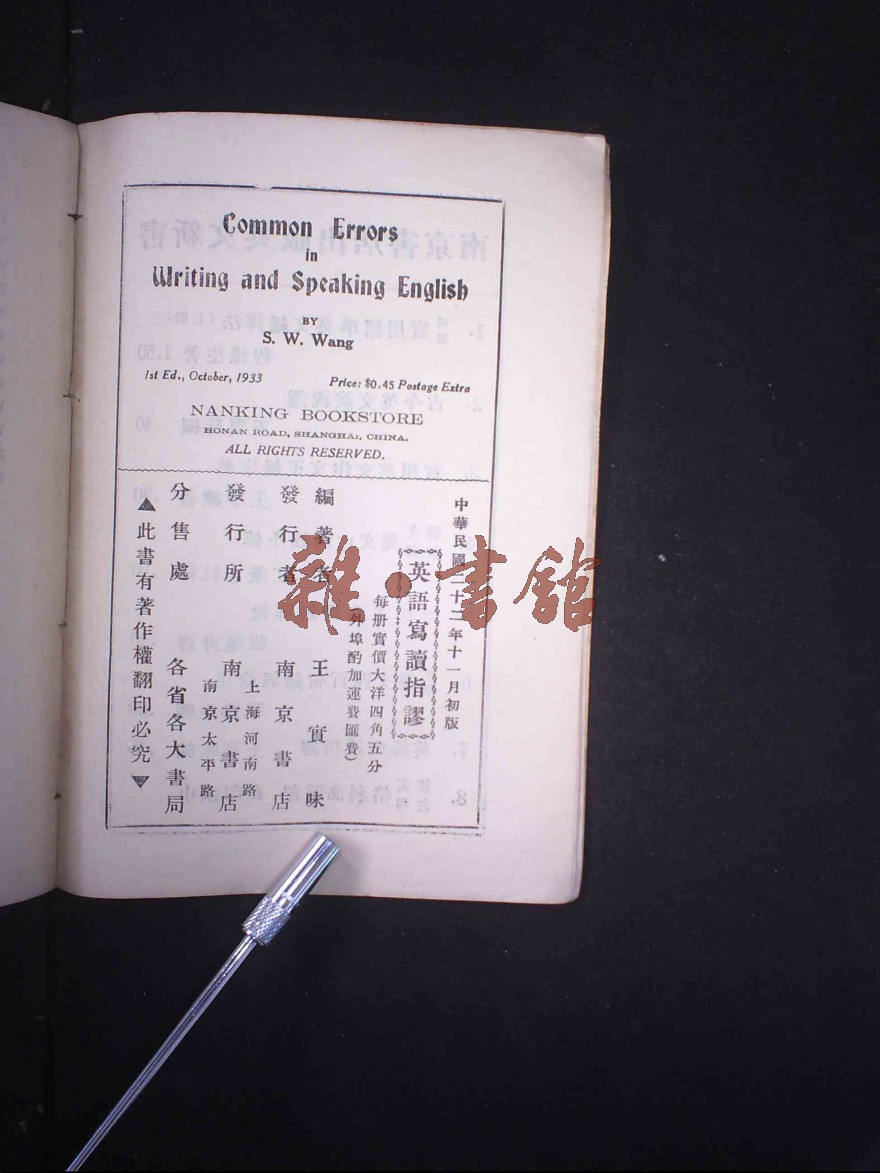 Common Errors
in
Writing and Speaking English
BY
S. W. Wang
1st Ed., October, 1933
Price: $0.45 Postage Extra
NANKING BOOKSTORE
HONAN ROAD, SHANGHAI, CHINA.
ALL RIGHTS RESERVED.
中華民國二十二年十一月初版
英語寫讀指謬
每册實價大洋四角五分
（外埠酌加運費匯費）
編著者 王實味
發行者 南京書店
發行所 南京書店
上海河南路
南京太平路
分售處 各省各大書局
▲此書有著作權翻印必究▼
雜·書館